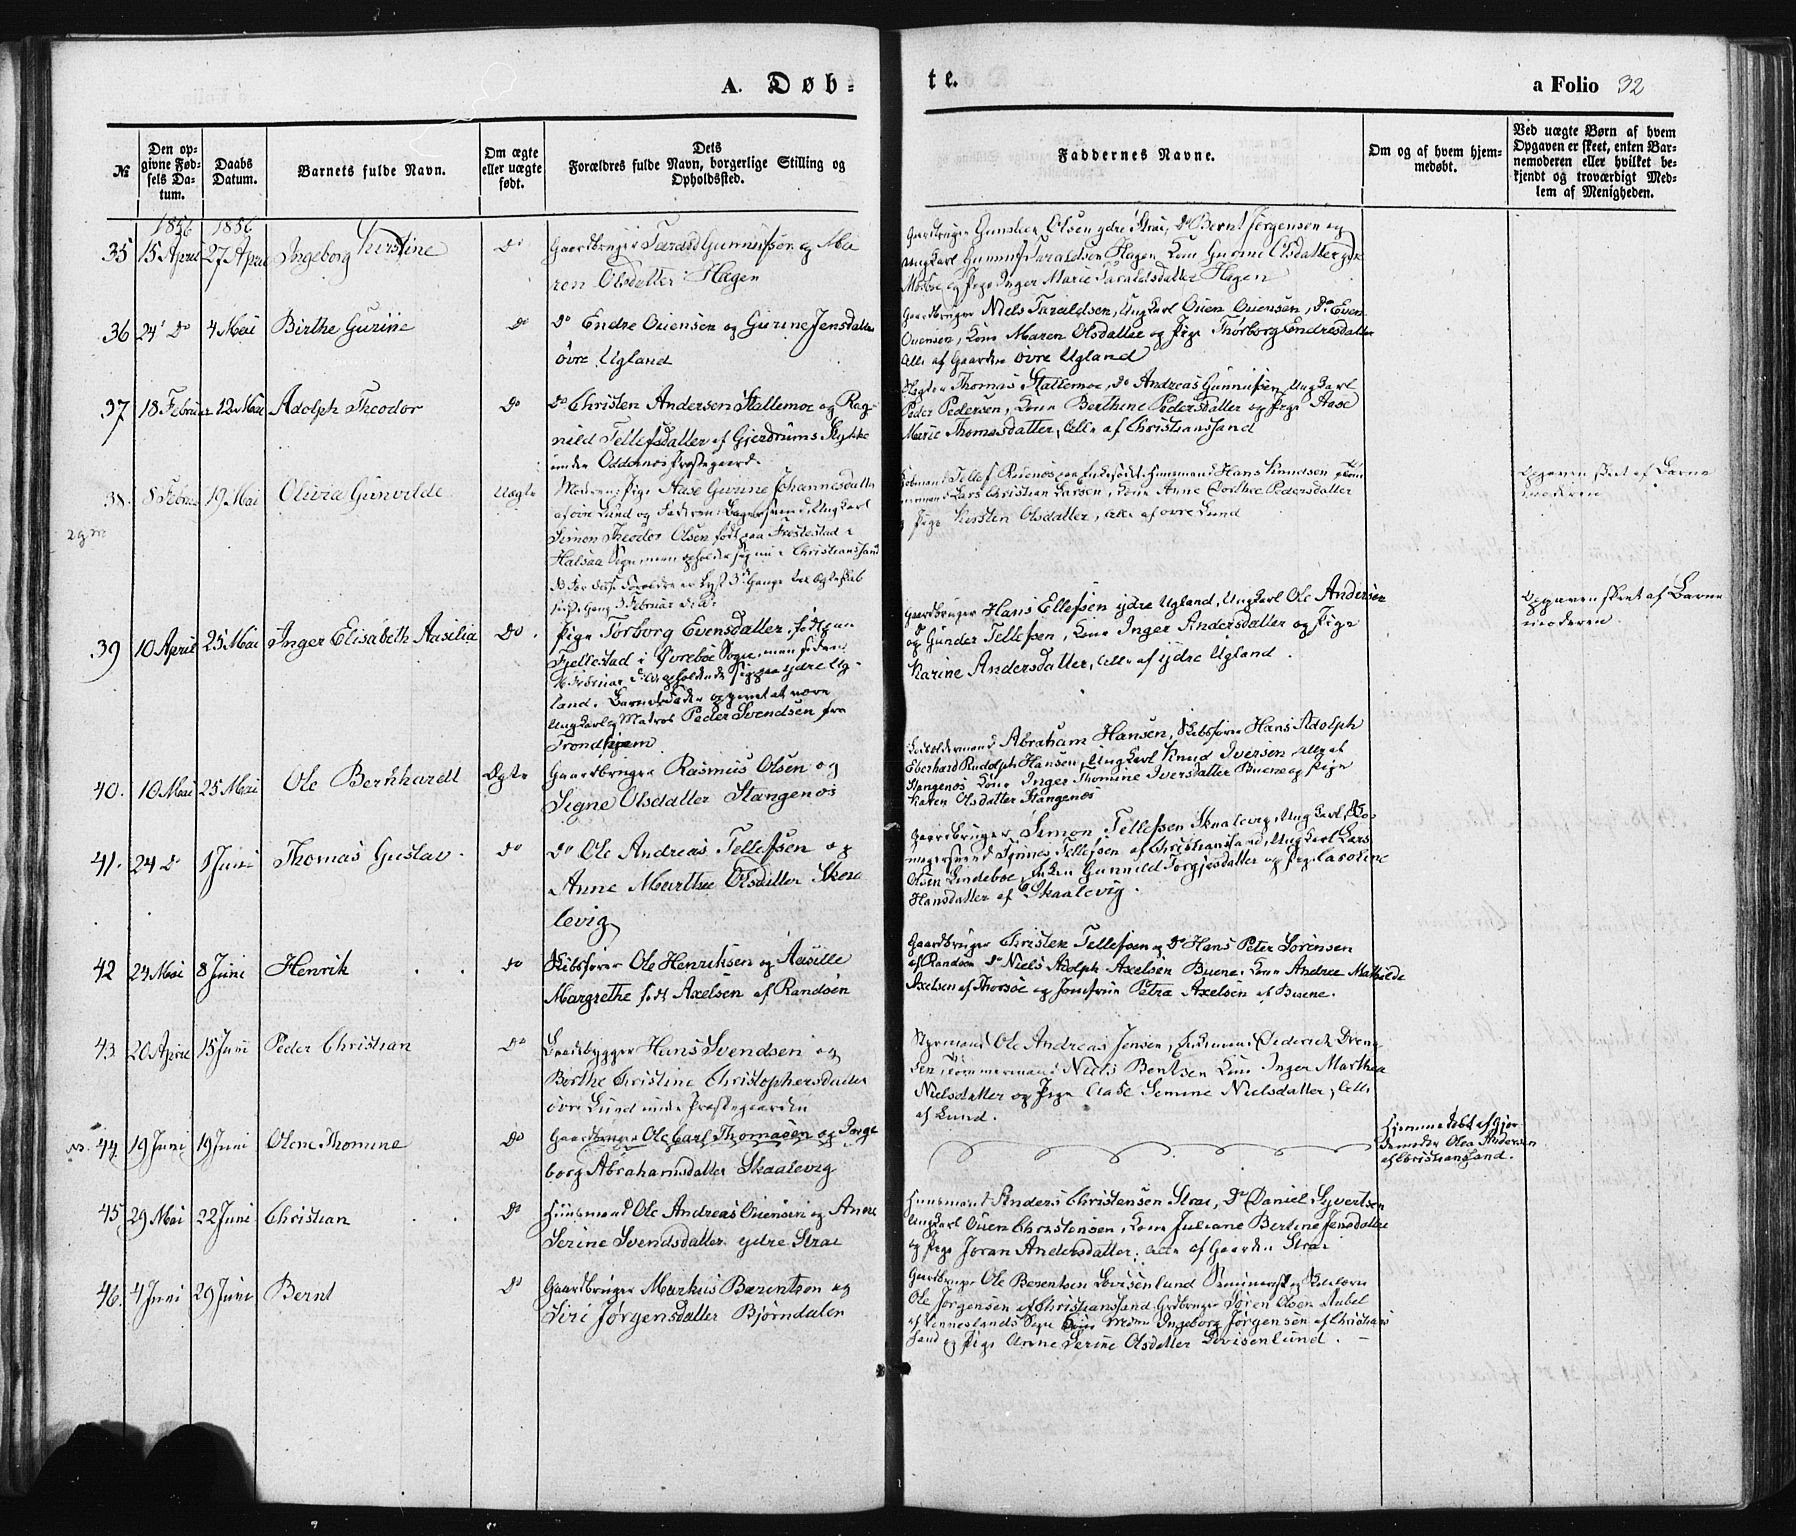 A. Døb-
te.
a Folio 32
№
Den opgivne Fødsels Datum.
Daabs Datum.
Barnets fulde Navn.
Om ægte eller uægte født.
Dets Forældres fulde Navn, borgerlige Stilling og Opholdssted.
Faddernes Navne.
Om og af hvem hjemmedøbt.
Ved uægte Børn af hvem Opgaven er skeet, enten Barnemoderen eller hvilket bekjendt og troværdigt Medlem af Menigheden.
1856 1856
35 15 April 27 April Ingeborg Kirstine Do
Gaardbruger Tarald Gunnufsen og Ma
ren Olsdatter Hagen
Gaardbruger Gunder Olsen ydre Strai, Do Bernt Jørgensen og
Ungkarl Gunnuf Taraldsen Hagen Kone Gurine Olsdatter
Mosbø og Pige Inger Marie Taraldsdatter Hagen
36 24 Do 4 Mai Birthe Gurine Do
Do Endre Ouensen og Gurine Jensdatter
øvre Ugland
Gaardbruger Niels Taraldsen, Ungkarl Ouen Ouensen, Do Even
Ouensen, Kone Maren Olsdatter og Pige Thorborg Endresdatter
Alle af Gaarden øvre Ugland
37 18 Februar 12 Mai Adolph Theodor Do
Do Christen Andersen Stallemoe og Rag
nild Tellefsdatter af Gjerdrums Stykke
under Oddernes Præstegaard.
Thomas Stallemoe, Do Andreas Gunnufsen, Ungkarl
Peder Pedersen, Kone Berthine Pedersdatter og Pige Aase
Marie Thomasdatter, Alle af Christianssand
38. 8 Februar 19 Mai Olivia Gunvilde Uægte
2 g.m
Moderen: Pige Aase Gurine Johannesdatter
af øvre Lund og Faderen: Bagersvend, Ungkarl
Simon Theodor Olsen født paa Frøstestad i
Halsaa Sogn men opholder sig nu i Christianssand
Tellef Hans Knudsen
Lars Christian Larsen, Kone Anne Dorthe Pedersdatter
og Pige Kirsten Olsdatter, Alle af øvre Lund
Opgaven skeet af Barne
moderen
39 10 April 25 Mai Inger Elisabeth Aasilia Do.
Pige Torborg Evensdatter, født paa
Fjellestad i Øvrebøe Sogn, men siden
land. Barnefader opgivet at være
Ungkarl og Matros Peder Svendsen fra
Trondhjem.
Gaardbruger Hans Ellefsen ydre Ugland, Ungkarl Ole Andersen
og Do Gunder Tellefsen, Kone Inger Andersdatter og Pige
Karine Andersdatter, Alle af ydre Ugland.
Opgaven skeet af Barne
moderen
40. 10 Mai 25 Mai Ole Bernhardt Ægte
Gaardbruger Rasmus Olsen og
Signe Olsdatter Stangenæs
Abraham Hansen, Skibsfører Hans Adolph
Eberhard Rudolph Hansen, Ungkarl Knud Iversen alle af
Stangenæs Kone Inger Thomine Iversdatter Buene og Pige
Karen Olsdatter Stangenæs
41. 24 Do 1 Juni Thomas Gustav. Do
Do Ole Andreas Tellefsen og
Anne Marthe Olsdatter Skaa
levig
Gaardbruger Simon Tellefsen Skaalevig, Ungkarl, Sko
magersvend Tønnes Tellefsen af Christianssand, Ungkarl Lars
Olsen Lindeboe, Enken Gunnild Torgjersdatter og Pige Caroline
Hansdatter af Skaalevig.
42 24 Mai 8 Juni Henrik Do
Skibsfører Ole Henriksen og Aasille
Margrethe født Axelsen af Randøen
Gaardbruger Christen Tellefsen og Do Hans Peter Sørensen
af Randøen Do Niels Adolph Axelsen Buene. Kone Andrea Mathilde
Axelsen af Thorsøe og Jomfrue Petra Axelsen af Buene.
43 20 April 15 Juni Peder Christian Do
Baadsbygger Hans Svendsen og
Berthe Christine Christophersdatter
øvre Lund under Præstegaarden
Styrmand Ole Andreas Jensen, Diderich
sen, Tømmermand Niels Bentsen Kone Inger Marthea
Nielsdatter og Pige Aase Semine Nielsdatter, Alle
af Lund.
NB. 44 19 Juni 19 Juni Olene Thomine Do
Gaardbruger Ole Carl Thomasen og Torge
borg Abrahamsdatter Skaalevig
Hjemmedøbt af Gjor
demoder Olea Andersen
af Christianssand.
45 29 Mai 22 Juni Christian Do
Huusmand Ole Andreas Ouensen og Anne
Serine Svendsdatter ydre Strai
Huusmand Anders Christensen Strai, Do Daniel Syvertsen
Ungkarl Ouen Christensen, Kone Juliane Bertine Jensdatter
og Pige Joran Andersdatter. Alle af Gaarden Strai
46. 4 Juni 29 Juni Bernt Do
Gaardbruger Markus Bærentsen og
Siri Jørgensdatter Bjørndalen
Gaardbruger Ole Berentsen Lovisenlund Seminarist og Skolelærer
Ole Jørgensen af Christianssand Gaardbruger Søren Olsen Aabel
af Venneslands Sogn Ingeborg Jørgensen af Christians
sand og Pige Anne Serine Olsdatter Lovisenlund.